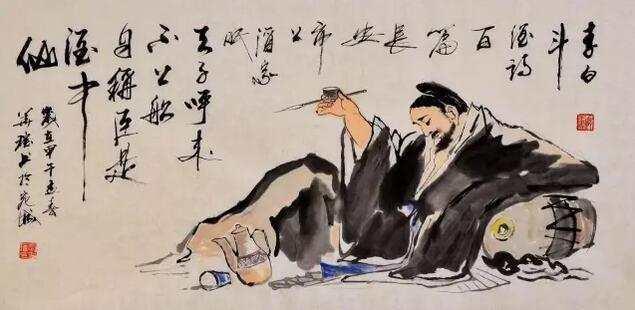 李白
斗
酒詩
百
篇
長
安
市
上
酒家
眠
天子呼来
不上船
自稱臣是
酒中
仙
歲在甲午春
於宛城